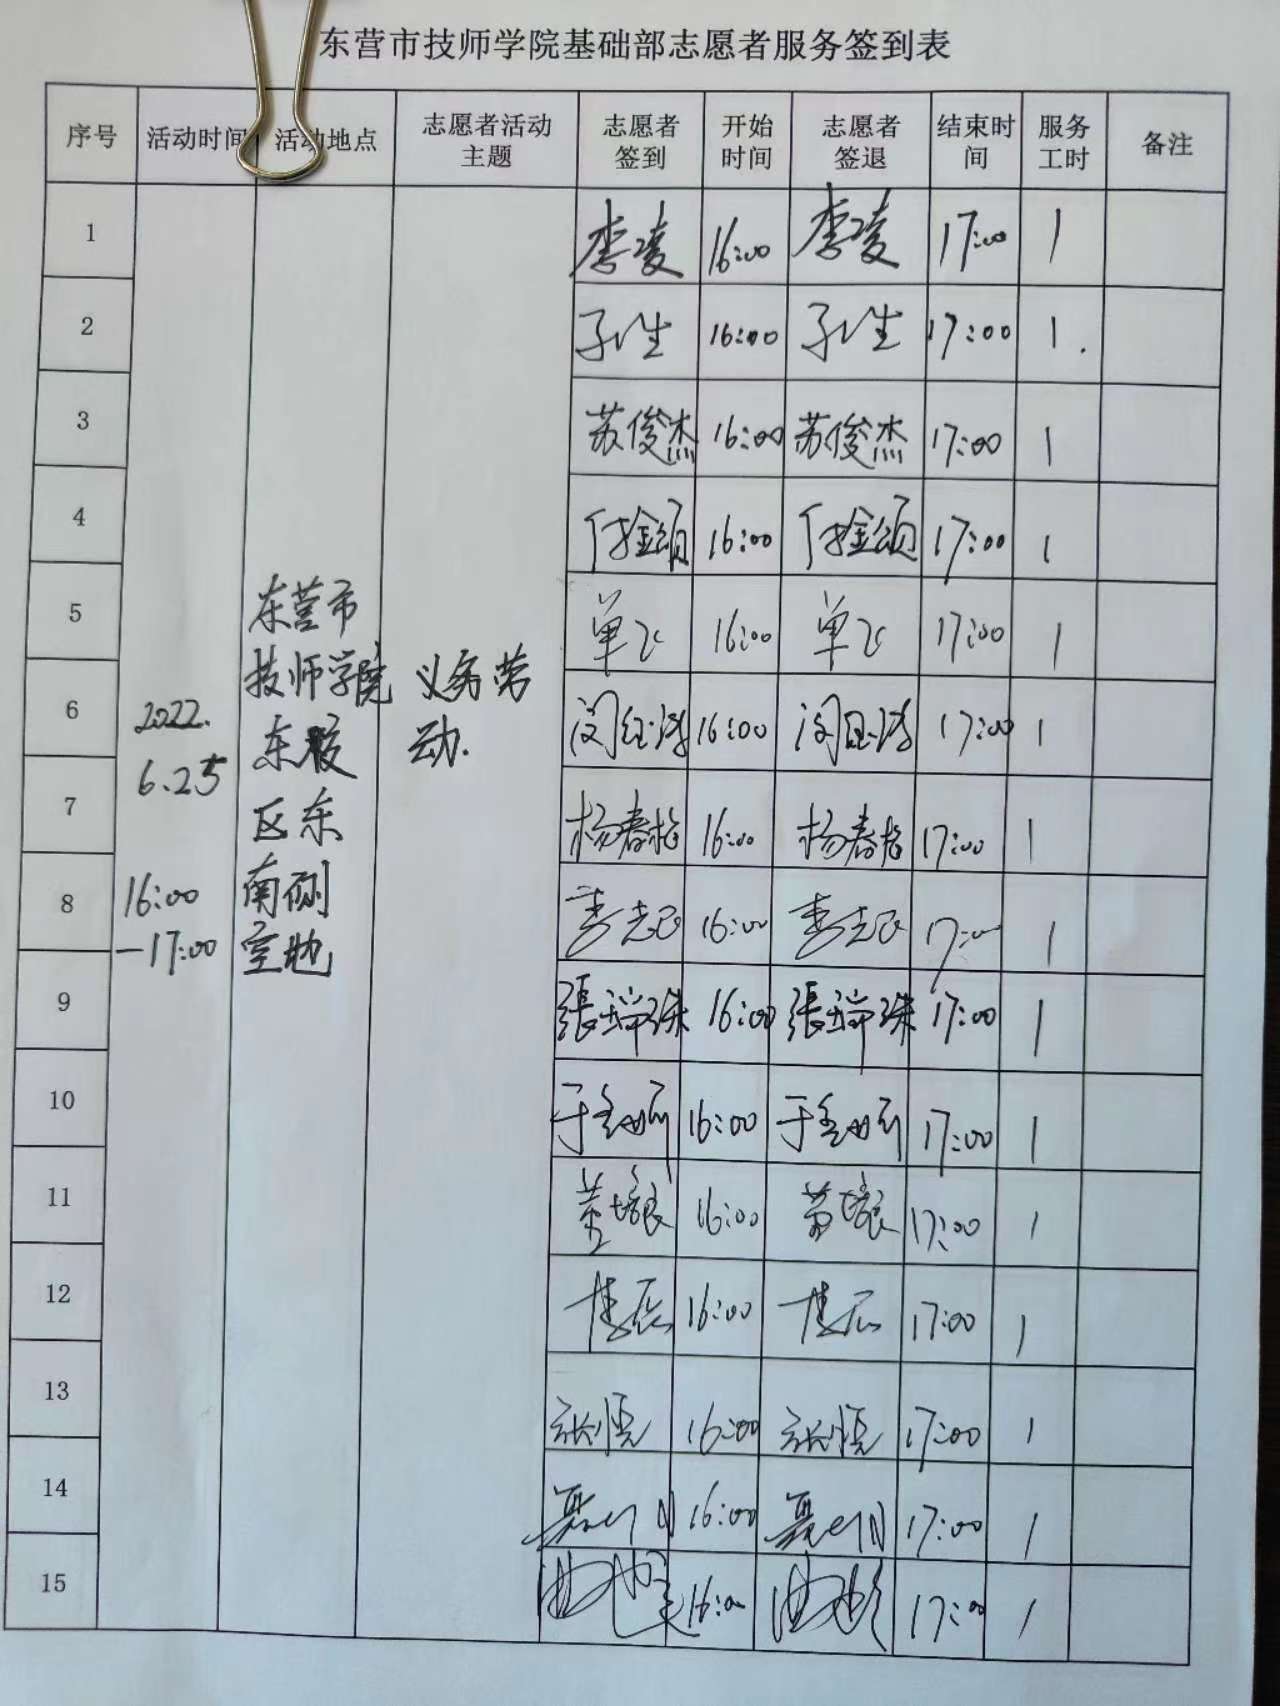 东营市技师学院基础部志愿者服务签到表
序号 活动时间 活动地点 志愿者活动主题 志愿者签到 开始时间 志愿者签退 结束时间 服务工时 备注
2022.
6.25
16:00
-17:00
东营市
技师学院
东校
区东
南侧
空地
义务劳
动.
1 李凌 16:00 李凌 17:00 1
2 16:00 17:00 1.
3 苏俊杰 16:00 苏俊杰 17:00 1
4 付金颂 16:00 付金颂 17:00 1
5 单飞 16:00 单飞 17:00 1
6 16:00 17:00 1
7 杨春 16:00 杨春 17:00 1
8 李志民 16:00 李志民 17:00 1
9 張瑞珠 16:00 張瑞珠 17:00 1
10 16:00 17:00 1
11 16:00 17:00 1
12 16:00 17:00 1
13 16:00 17:00 1
14 16:00 17:00 1
15 16:00 17:00 1